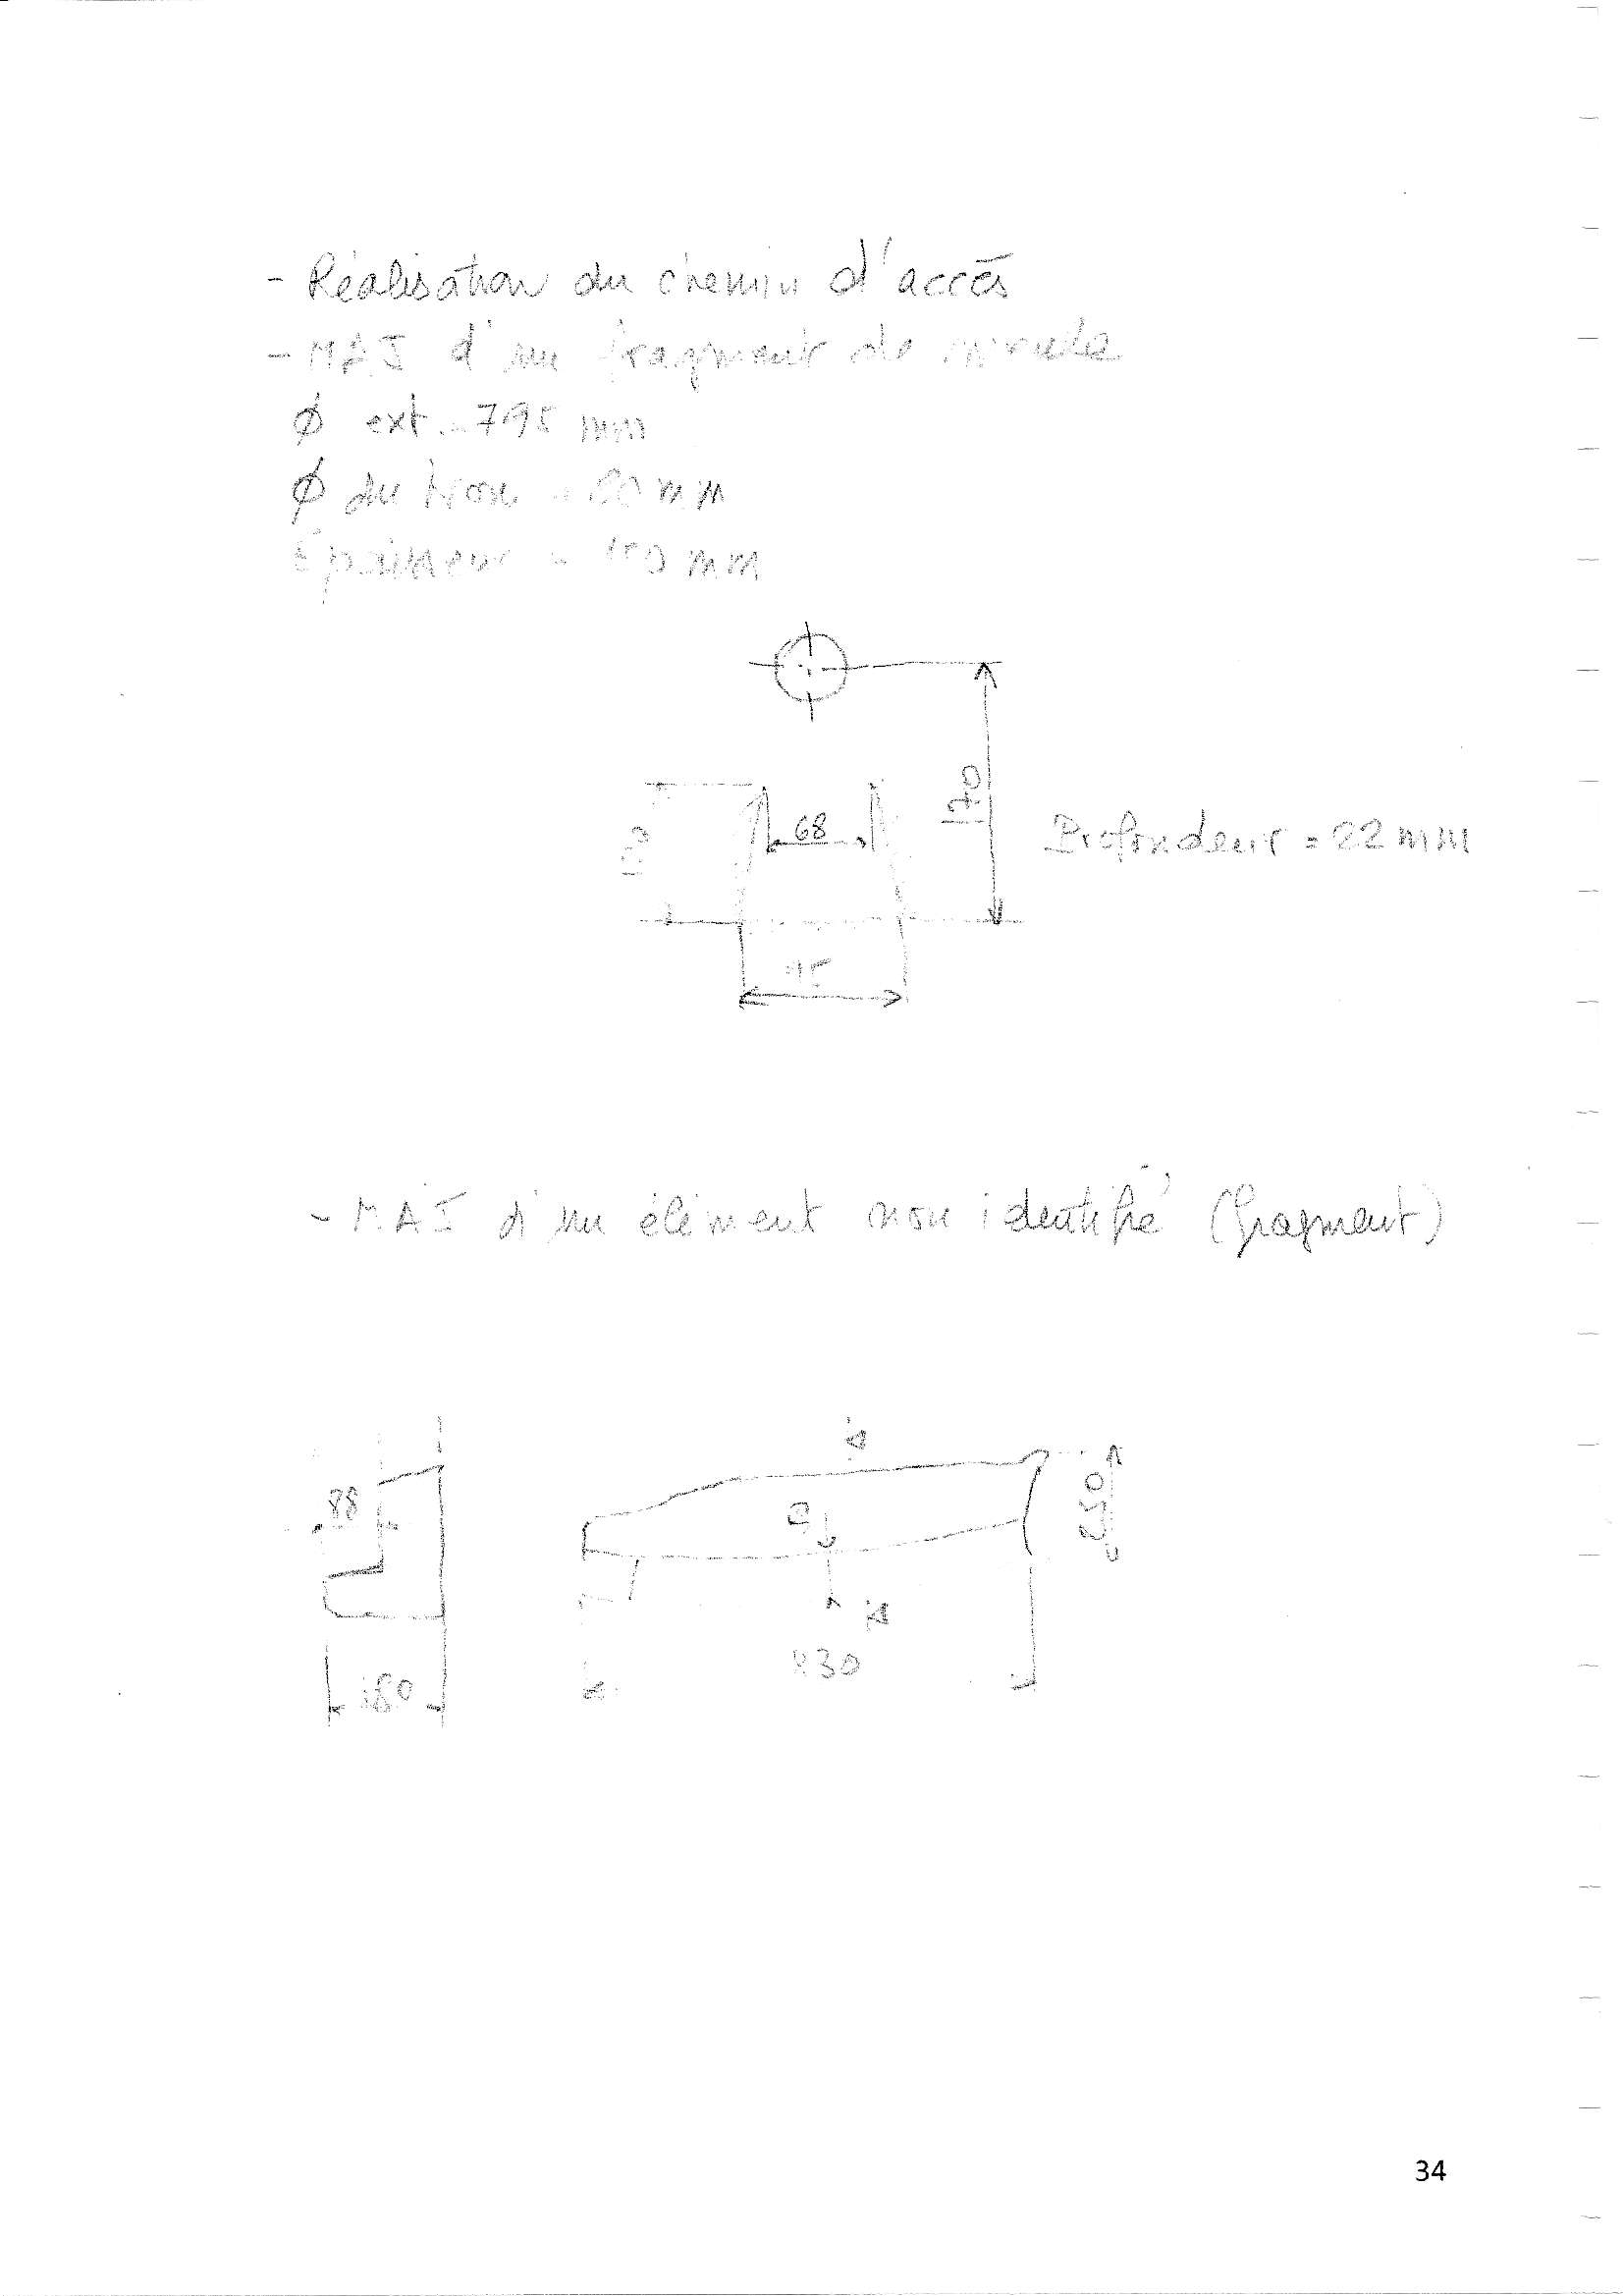 - Réalisation du chemin d'accès
- MAJ d'un fragment de meule
Ø ext. = 795 mm
Ø du trou = 60 mm
Épaisseur = 150 mm
170
68
Profondeur = 22 mm
- MAJ d'un élément non identifié (fragment)
A
88
250
A
180
830
34